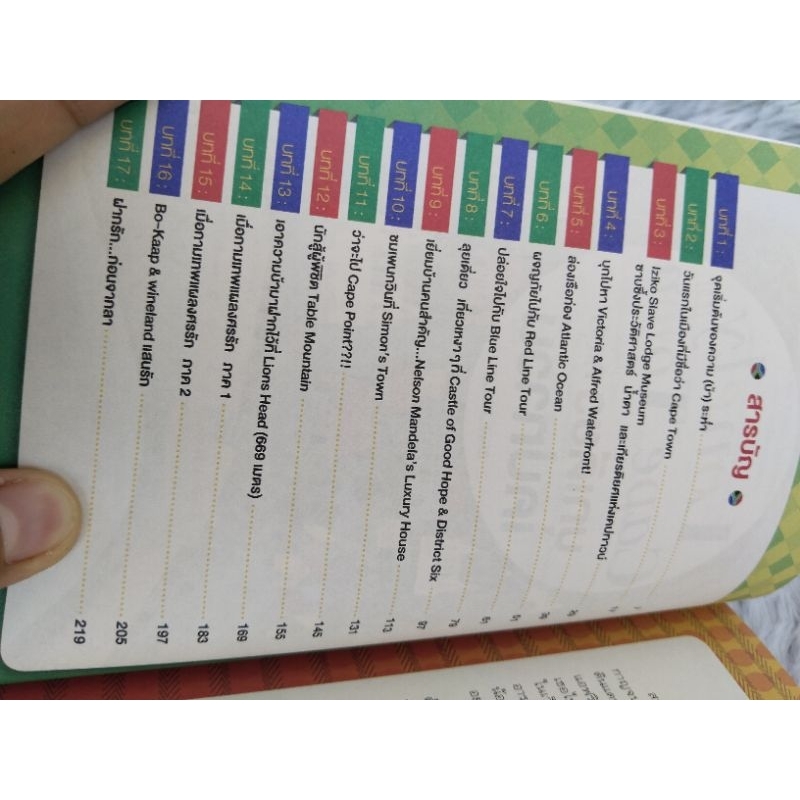 สารบัญ
บทที่ 1 : จุดเริ่มต้นของความ (บ้า) ระห่ำ
บทที่ 2 : วันแรกในเมืองที่มีชื่อว่า Cape Town
บทที่ 3 : Iziko Slave Lodge Museum
ซาบซึ้งประวัติศาสตร์ น้ำตา และเกียรติยศแห่งเคปทาวน์
บทที่ 4 : บุกไปหา Victoria & Alfred Waterfront!
บทที่ 5 : ล่องเรือท่อง Atlantic Ocean
บทที่ 6 : ผจญภัยไปกับ Red Line Tour
บทที่ 7 : ปล่อยใจไปกับ Blue Line Tour 61
บทที่ 8 : ลุยเดี่ยว เที่ยวเหงา ๆ ที่ Castle of Good Hope & District Six 79
บทที่ 9 : เยี่ยมบ้านคนสำคัญ...Nelson Mandela's Luxury House 97
บทที่ 10 : ชมเพนกวินที่ Simon's Town 113
บทที่ 11 : ว่าจะไป Cape Point??!! 131
บทที่ 12 : นักสู้ผู้พิชิต Table Mountain 145
บทที่ 13 : เอาความบ้ามาฝากไว้ที่ Lions Head (669 เมตร) 155
บทที่ 14 : เมื่อกามเทพแผลงศรรัก ภาค 1 169
บทที่ 15 : เมื่อกามเทพแผลงศรรัก ภาค 2 183
บทที่ 16 : Bo-Kaap & wineland แสนรัก 197
บทที่ 17 : ฝากรัก...ก่อนจากลา 205
219